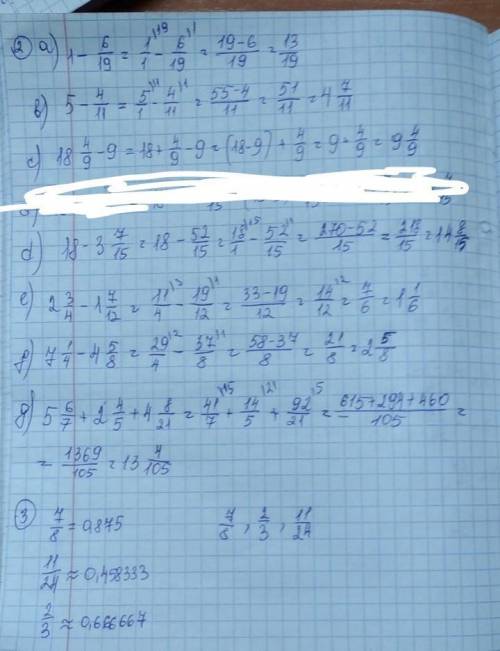 ② a) 1 - 6/19 = 1/1 \19 - 6/19 \1 = (19-6)/19 = 13/19
b) 5 - 4/11 = 5/1 \11 - 4/11 \1 = (55-4)/11 = 51/11 = 4 7/11
c) 18 4/9 - 9 = 18 + 4/9 - 9 = (18-9) + 4/9 = 9 + 4/9 = 9 4/9
d) 18 - 3 7/15 = 18 - 52/15 = 18/1 \15 - 52/15 \1 = (270-52)/15 = 218/15 = 14 8/15
e) 2 3/4 - 1 7/12 = 11/4 \3 - 19/12 \1 = (33-19)/12 = 14/12 \2 = 7/6 = 1 1/6
f) 7 1/4 - 4 5/8 = 29/4 \2 - 37/8 \1 = (58-37)/8 = 21/8 = 2 5/8
g) 5 6/7 + 2 4/5 + 4 8/21 = 41/7 \15 + 14/5 \21 + 92/21 \5 = (615+294+460)/105 =
= 1369/105 = 13 4/105
③ 7/8 = 0,875 7/8, 2/3, 11/24
11/24 ≈ 0,458333
2/3 ≈ 0,666667